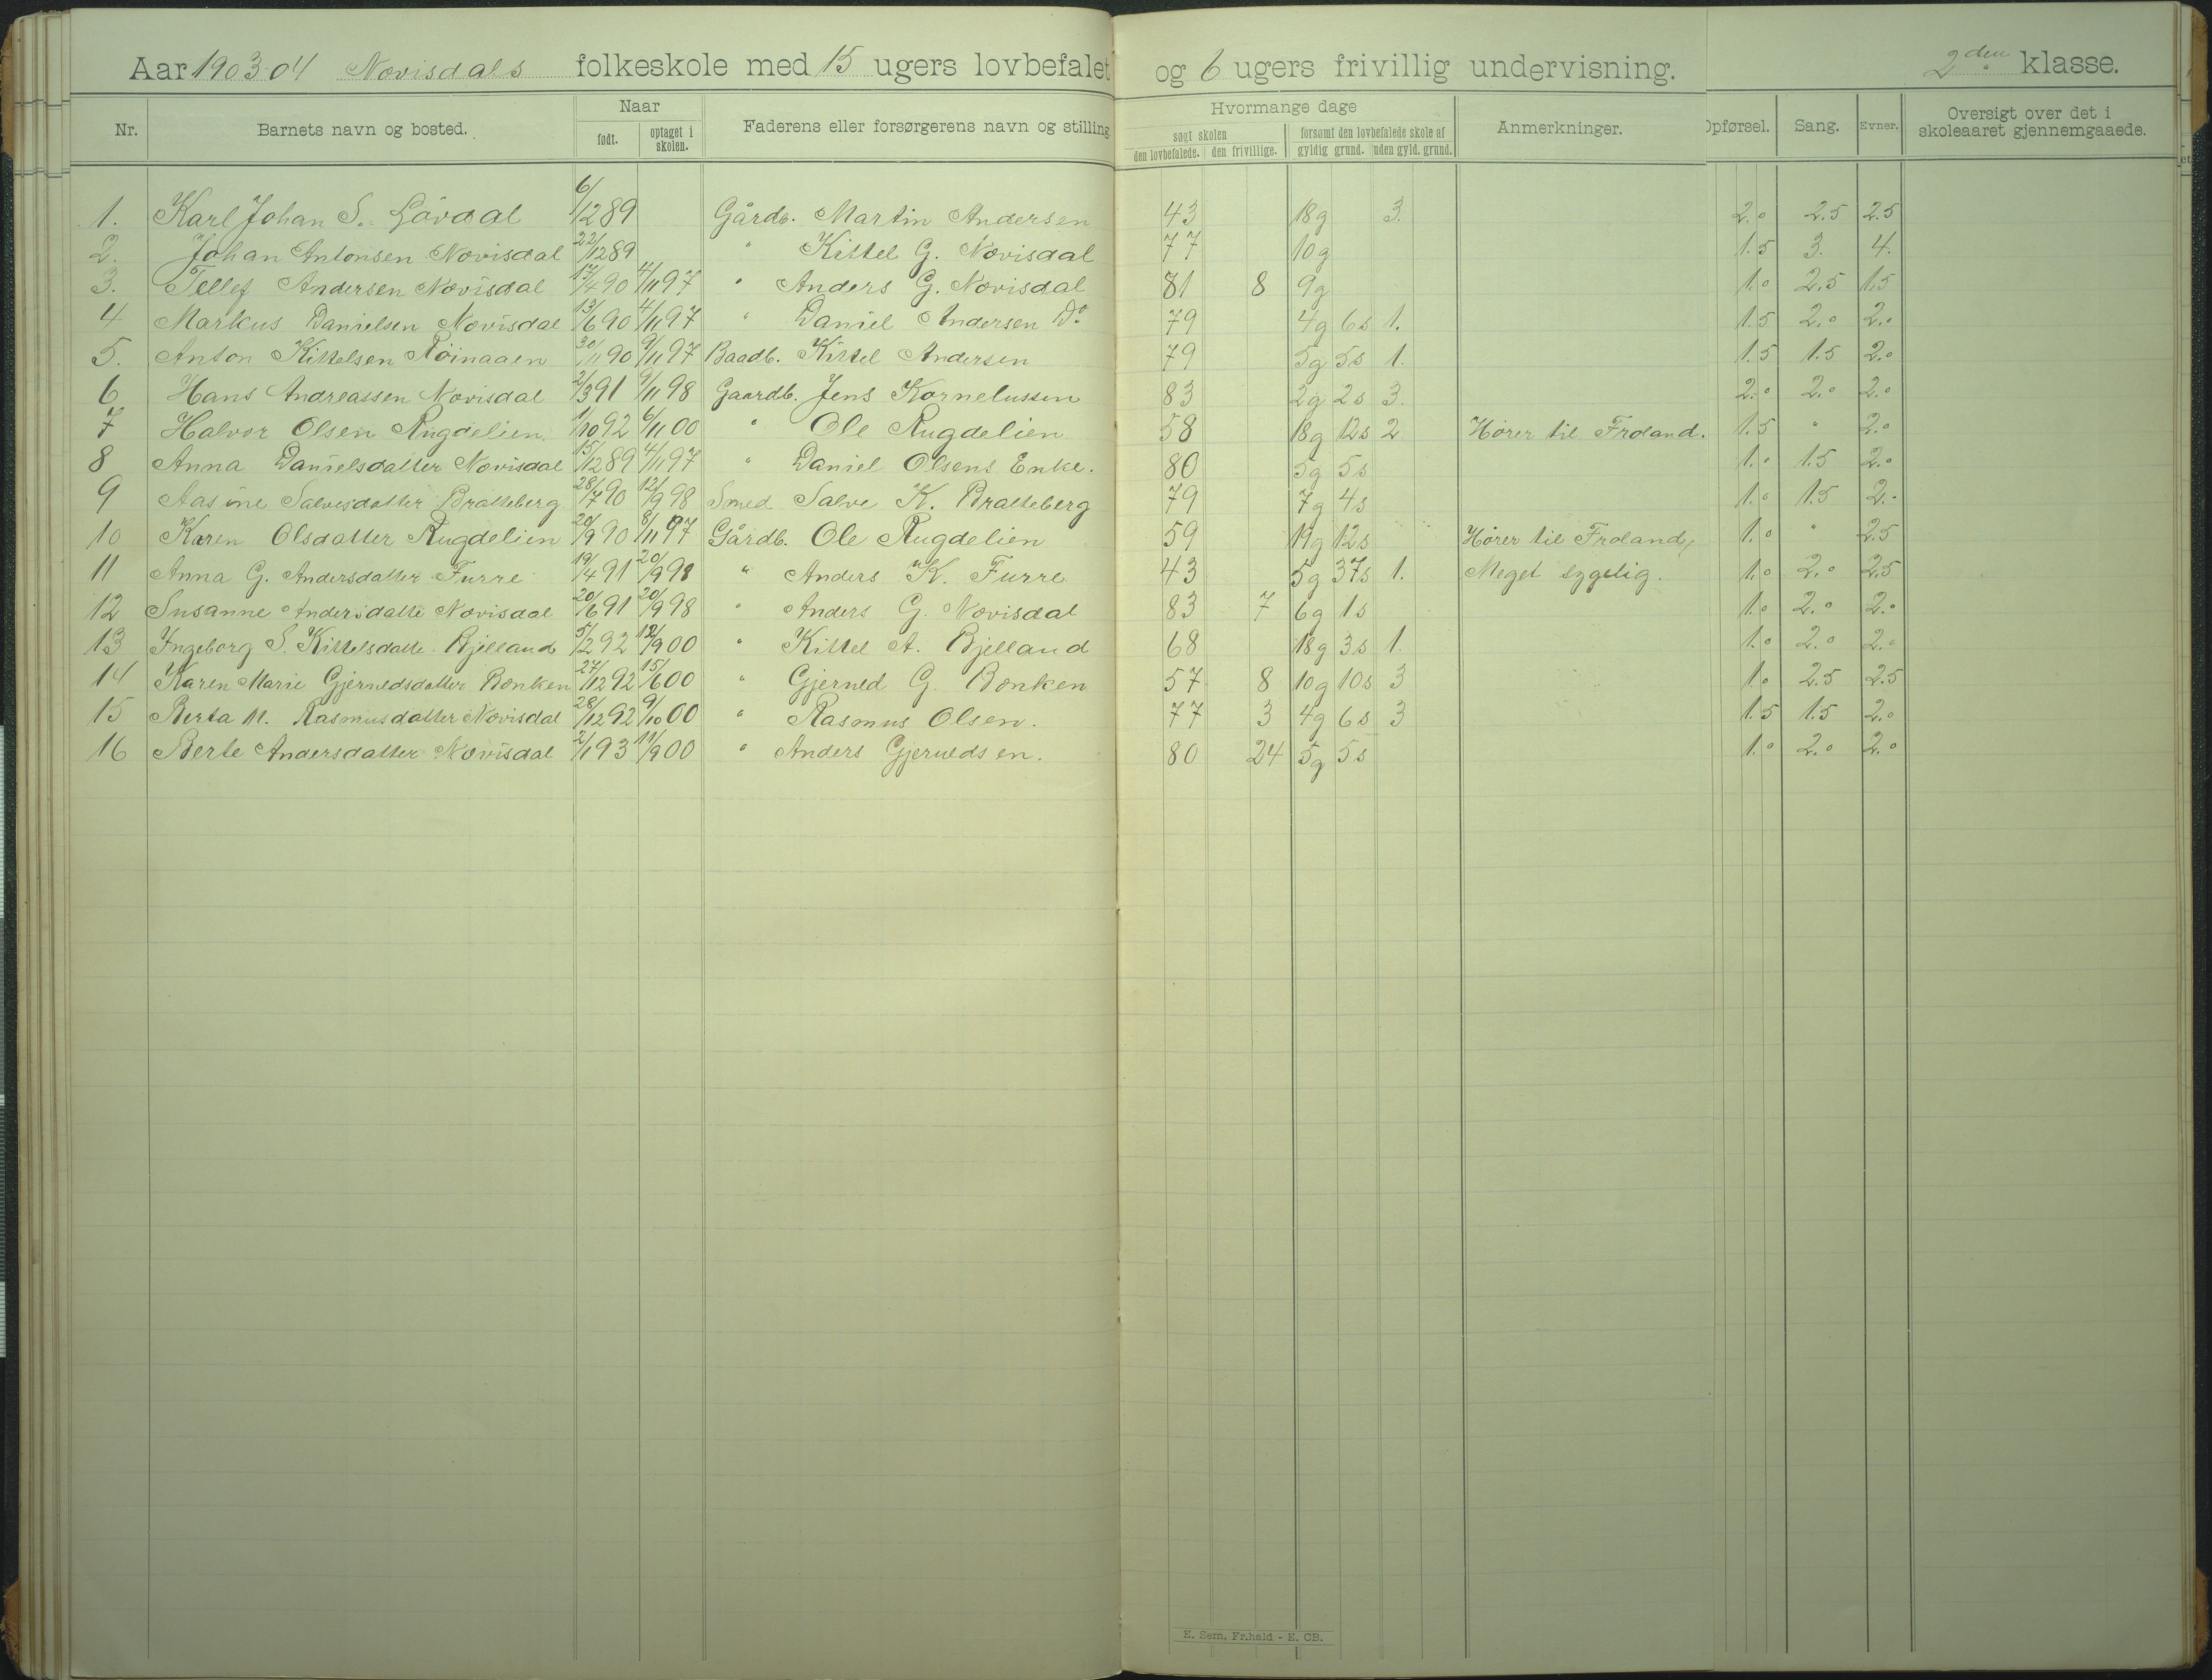 Aar 1903-04 Novisdals folkeskole med 15 ugers lovbefalet og 6 ugers frivillig undervisning. 2den klasse.
Nr. Barnets navn og bosted. Naar født. optaget i skolen. Faderens eller forsørgerens navn og stilling Hvormange dage søgt skolen den lovbefalede. den frivillige. forsømt den lovbefalede skole af gyldig grund. uden gyld. grund. Anmerkninger. Opførsel. Sang. Evner. Oversigt over det i skoleaaret gjennemgaaede.
1. Karl Johan S. Lövdal 6/12 89 Gårdb. Martin Andersen 43 18g 3. 2.0 2.5 2.5
2. Johan Antonsen Novisdal 22/12 89 " Kittel G. Novisdal 77 10g 1.5 3. 4.
3. Tellef Andersen Novisdal 17/4 90 4/11 97 " Anders G. Novisdal 81 8 9g 1.0 2.5 1.5
4 Markus Danielsen Novisdal 13/6 90 4/11 97 " Daniel Andersen Do 79 4g 6s 1. 1.5 2.0 2.0
5. Anton Kittelsen Röinaaen 30/11 90 9/11 97 Baadb. Kittel Andersen 79 5g 5s 1. 1.5 1.5 2.0
6 Hans Andreassen Novisdal 2/3 91 9/11 98 Gaardb. Jens Kornelussen 83 2g 2s 3. 2.0 2.0 2.0
7 Halvor Olsen Rugdelien 1/10 92 6/11 00 " Ole Rugdelien 58 18g 12s 2 Hører til Froland. 1.5 " 2.0
8 Anna Danielsdatter Novisdal 15/12 89 4/11 97 " Daniel Olsens Enke. 80 5g 5s 1.0 1.5 2.0
9 Aasine Salvesdatter Bratteberg 28/7 90 12/9 98 Smed Salve K. Bratteberg 79 7g 4s 1.0 1.5 2.
10 Karen Olsdatter Rugdelien 20/9 90 8/11 97 Gårdb. Ole Rugdelien 59 19g 12s Hører til Froland, 1.0 " 2.5
11 Anna G. Andersdatter Furre 19/4 91 20/9 98 " Anders K. Furre 43 5g 37s 1. Meget sygelig. 1.0 2.0 2.5
12 Susanne Andersdatte Novisdal 20/6 91 20/9 98 " Anders G. Novisdal 83 7 6g 1s 1.0 2.0 2.0
13 Ingeborg S. Kittelsdatte Bjelland 5/2 92 12/9 00 " Kittel A. Bjelland 68 18g 3s 1. 1.0 2.0 2.0
14 Karen Marie Gjeruldsdatter Bonken 27/12 92 15/6 00 " Gjeruld G. Bonken 57 8 10g 10s 3 1.0 2.5 2.5
15 Berta M. Rasmusdatter Novisdal 28/12 92 9/10 00 " Rasmus Olsen. 77 3 4g 6s 3 1.5 1.5 2.0
16 Berte Andersdatter Novisdal 2/1 93 11/9 00 " Anders Gjeruldsen. 80 24 5g 5s 1.0 2.0 2.0
E. Sem, Fr.hald - E. CB.